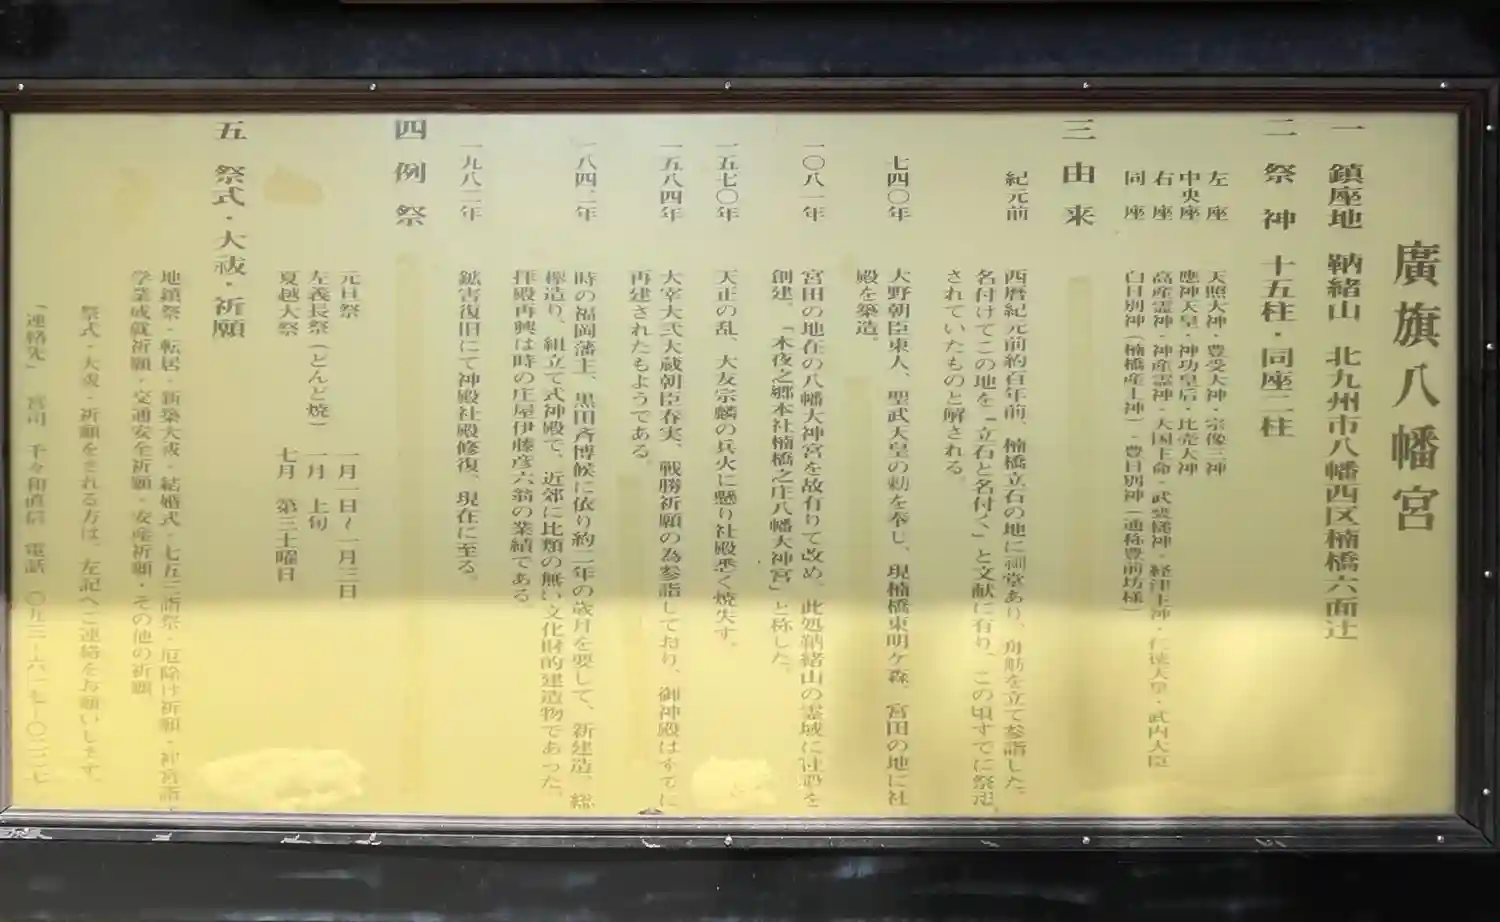 廣旗八幡宮
一 鎮座地 鞆緒山 北九州市八幡西区楠橋六面辻
二 祭神 十五柱・同座二柱
左座 天照大神・豊受大神・宗像三神
中央座 應神天皇・神功皇后・比売大神
右座 高産霊神・神産霊神・大国主命・武甕槌神・経津主神・仁徳天皇・武内大臣
同座 白日別神(楠橋産土神)・豊日別神(通称豊前坊様)
三 由来
紀元前 西暦紀元前約百年前、楠橋立石の地に祠堂あり、舟舫を立て参詣した。
名付けてこの地を「立石と名付く」と文献に有り、この頃すでに祭祀
されていたものと解される。
七四〇年 大野朝臣東人、聖武天皇の勅を奉じ、現楠橋東明ケ森、宮田の地に社
殿を築造。
一〇八一年 宮田の地在の八幡大神宮を故有りて改め、此処鞆緒山の霊域に社殿を
創建。「木夜之郷本社楠橋之庄八幡大神宮」と称した。
一五七〇年 天正の乱、大友宗麟の兵火に懸り社殿悉く焼失す。
一五八四年 大宰大弐大蔵朝臣春実、戦勝祈願の為参詣しており、御神殿はすでに
再建されたもようである。
一八四二年 時の福岡藩主、黒田斉博候に依り約二年の歳月を要して、新建造、総
欅造り、組立て式神殿で、近郊に比類の無い文化財的建造物であった。
拝殿再興は時の庄屋伊藤彦六翁の業績である。
一九八二年 鉱害復旧にて神殿社殿修復、現在に至る。
四 例祭
元旦祭 一月一日~一月三日
左義長祭(どんど焼) 一月 上旬
夏越大祭 七月 第三土曜日
五 祭式・大祓・祈願
地鎮祭・転居・新築大祓・結婚式・七五三詣祭・厄除け祈願・初宮詣・
学業成就祈願・交通安全祈願・安産祈願・その他の祈願
祭式・大祓・祈願をされる方は、左記へご連絡をお願いします。
「連絡先」 宮司 千々和直信 電話 〇九三―六一七―〇二二七